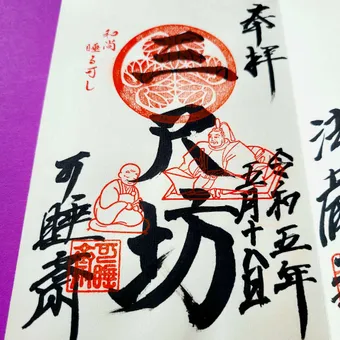 奉拝
令和五年
五月十八日
三尺坊
和尚
睡る可し
可睡斎
可睡斎
法蔵